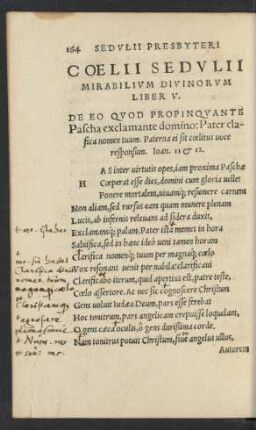 164 SEDVLII PRESBYTERI
COELII SEDVLII
MIRABILIVM DIVINORVM
LIBER V.
DE EO QVOD PROPINQVANTE
Pascha exclamante domino: Pater cla-
fica nomen tuum. Paterna ei sit cœlitus uoce
responsum. Ioan. 11 & 12.
H
AS inter uirtutis opes, iam proxima Paschæ
Cœperat esse dies, domini cum gloria uellet
Ponere mortalem, uiuamq; resumere carnem
Non aliam, sed rursus eam quam munere plenam
Lucis, ab infernis releuans ad sidera duxit,
Exclamansq; palam. Pater ista memet in hora
Saluifica, sed in hanc ideo ueni tamen horam
Clarifica nomenq; tuum per magnaq; cœlo
Vox resonans uenit per nubila: clarificaui
Clarificabo iterum, quod apertius est, patre teste,
Cœlo assertore. Ac nec sic cognoscere Christum
Gens uoluit Iudæa Deum, pars esse ferebat
Hoc tonitrum, pars angelicam crepuisse loquelam,
O gens cæca oculis, ô gens durissima corde.
Nam tonitrui potuit Christum, siue angelus ullus,
Autorem